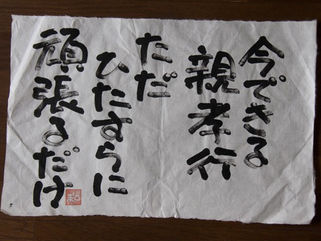 今できる
親孝行
ただ
ひたすらに
頑張るだけ